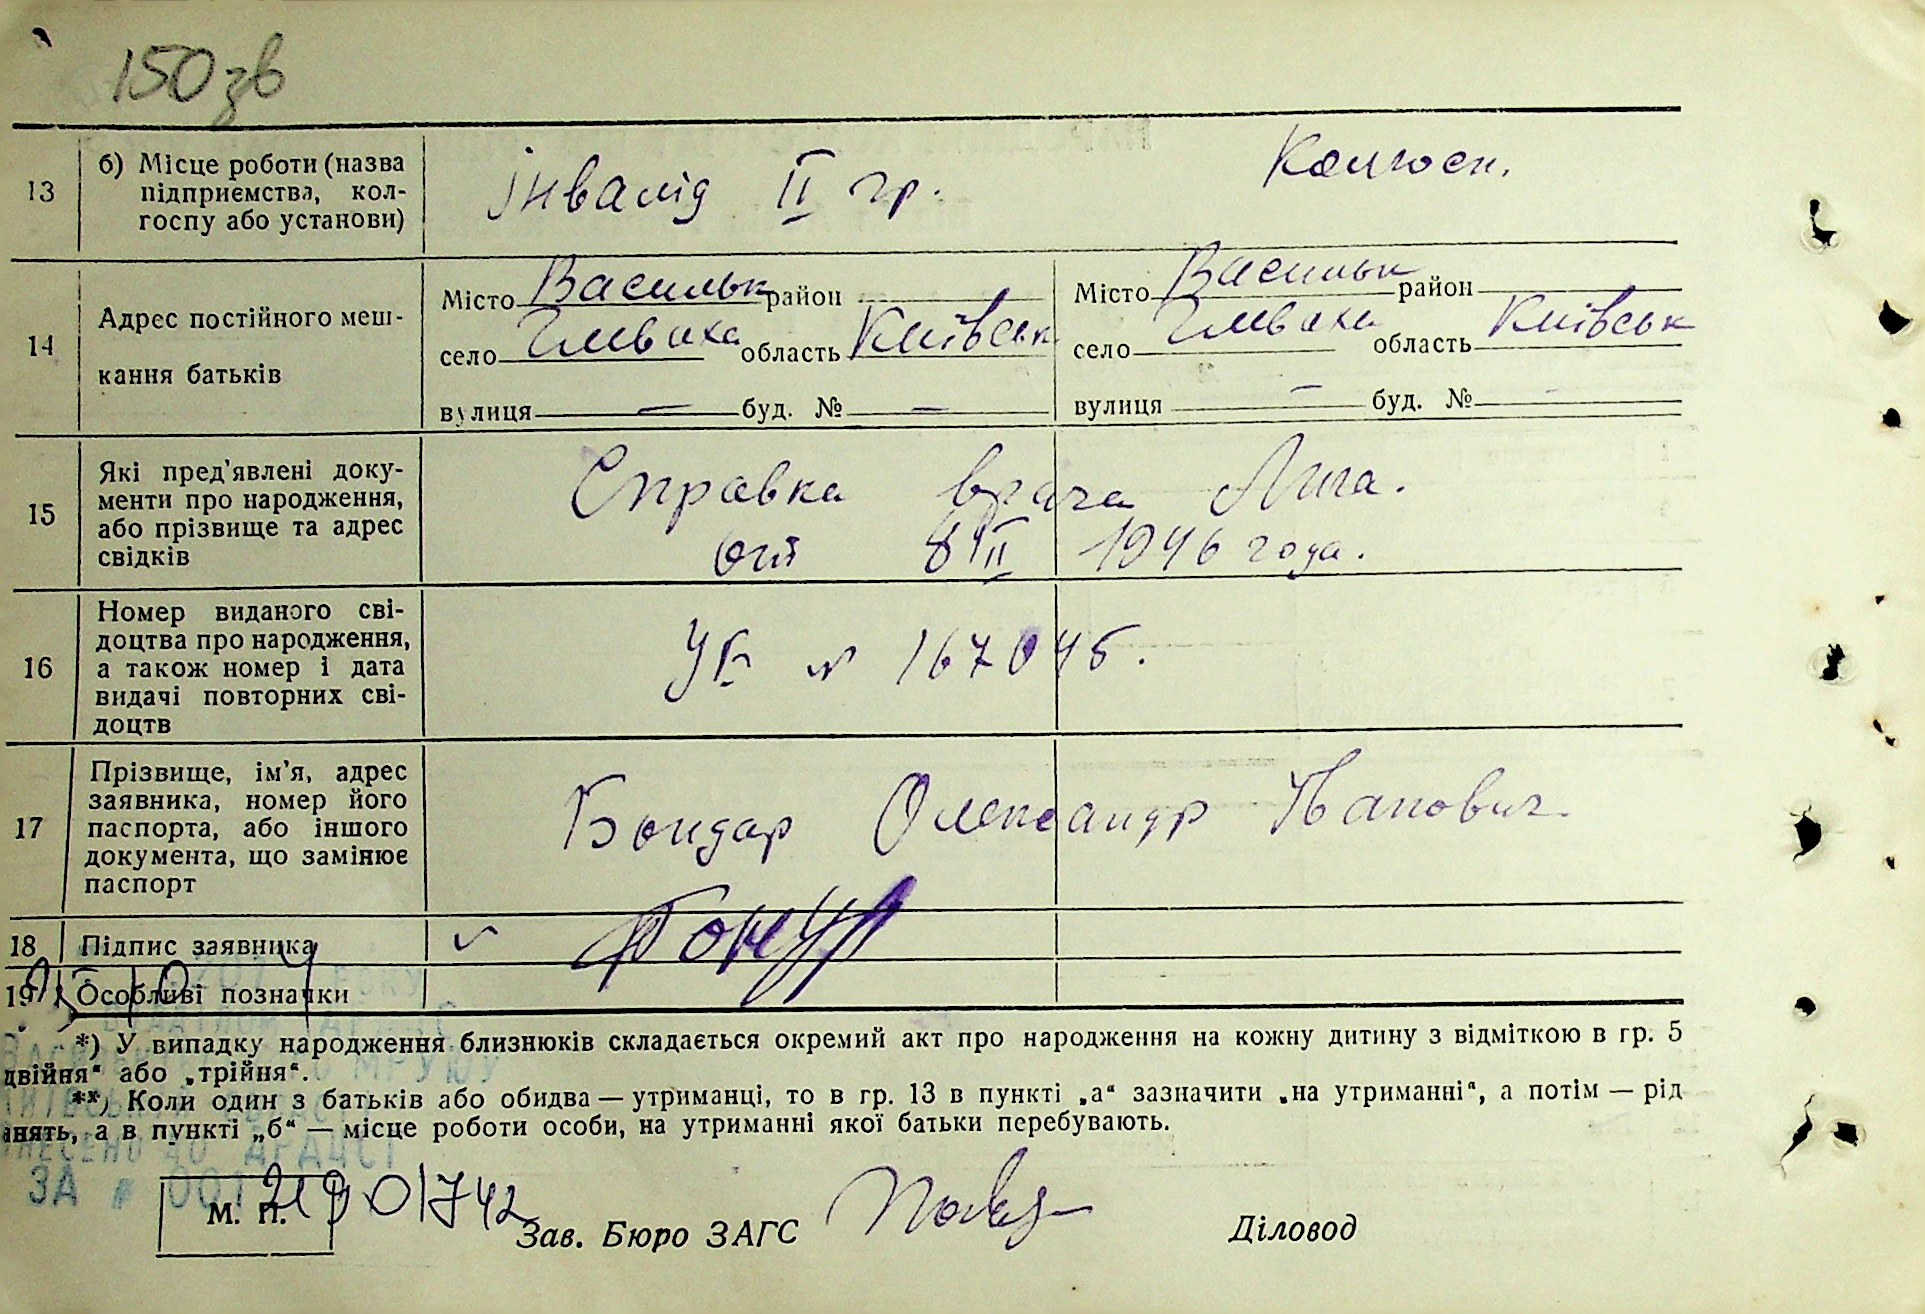 150 зв
13 б) Місце роботи (назва підприємства, колгоспу або установи) інвалід II гр. Колгосп.
14 Адрес постійного мешкання батьків
Місто Васильк район Місто Васильк район
село Глеваха область Київськ село Глеваха область Київськ
вулиця — буд. № — вулиця — буд. №
15 Які пред'явлені документи про народження, або прізвище та адрес свідків
Справка врача
от 8/II 1946 года.
16 Номер виданого свідоцтва про народження, а також номер і дата видачі повторних свідоцтв
УБ № 167045.
17 Прізвище, ім'я, адрес заявника, номер його паспорта, або іншого документа, що замінює паспорт
Бондар Олександр Іванович
18 Підпис заявника
19 Особливі позначки
*) У випадку народження близнюків складається окремий акт про народження на кожну дитину з відміткою в гр. 5
двійня" або „трійня".
**) Коли один з батьків або обидва — утриманці, то в гр. 13 в пункті „а" зазначити „на утриманні", а потім — рід
анять, а в пункті „б" — місце роботи особи, на утриманні якої батьки перебувають.
ЗА № 001
М. П.
Зав. Бюро ЗАГС Діловод